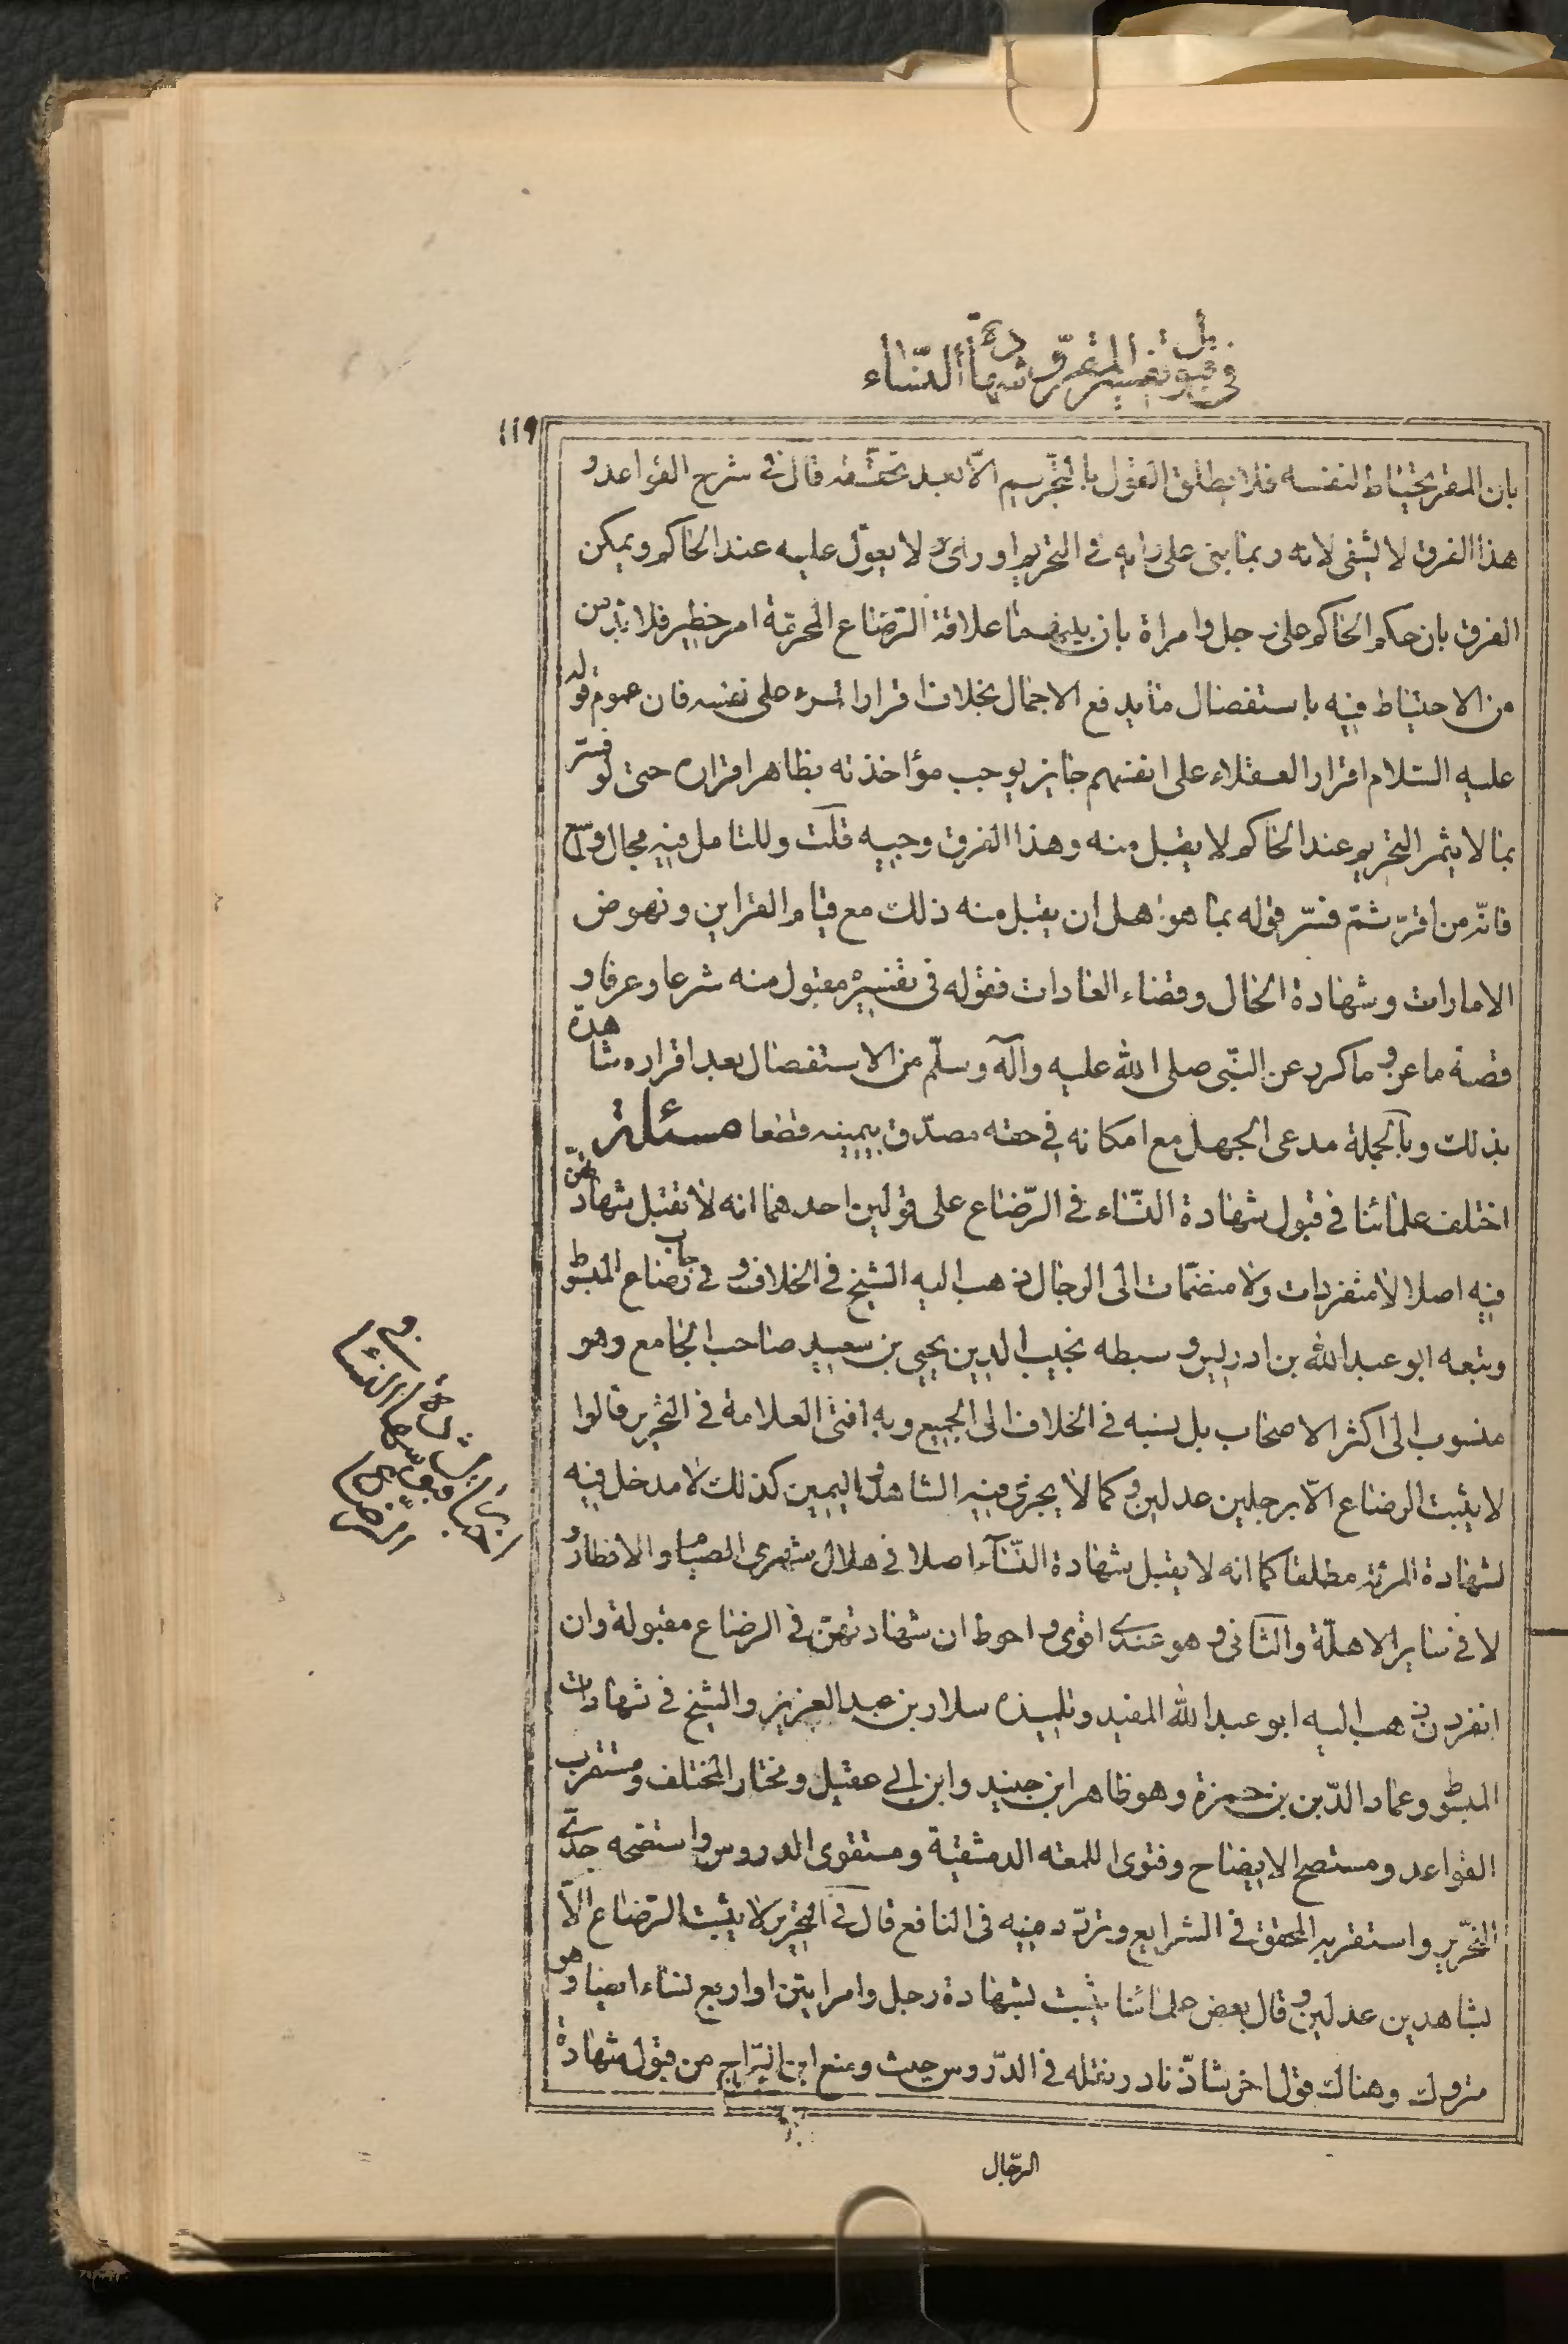 في قبول تفسير المقر و شهادة النساء
١١٩
بان المقر يحتاط لنفسه فلا يطلق القول بالتحريم الا بعد تحققه قال في شرح القواعد و
هذا الفرق لا يشفى لانه ربما يبنى على رايه في التحريم او راى لا يعول عليه عند الحاكم ويمكن
الفرق بان حكم الحاكم على رجل وامراة بان بينهما علاقة الرضاع المحرمة امر خطير فلا بد من
من الاحتياط فيه باستفصال ما يدفع الاجمال بخلاف اقرار المرء على نفسه فان عموم قوله
عليه السلام اقرار العقلاء على انفسهم جايز يوجب مؤاخذته بظاهر اقراره حتى لو فسّر
بما لا يثمر التحريم عند الحاكم لا يقبل منه وهذا الفرق وجيه قلت وللتامل فيه مجال
فانه من اقرّ ثمّ فسّر قوله بما هو اهل ان يقبل منه ذلك مع قيام القراين ونهوض
الامارات وشهادة الحال وقضاء العادات فقوله في تفسيره مقبول منه شرعا وعرفا و
قصة ماعز وما كرر عن النّبى صلى الله عليه وآله وسلّم من الاستفصال بعد اقراره شاهدة
بذلك وبالجملة مدعى الجهل مع امكانه في حقه مصدّق بيمينه قطعا مسئلة
اختلف علمائنا في قبول شهادة النّساء في الرّضاع على قولين احدهما انه لا تقبل شهادتهنّ
فيه اصلا لا منفردات ولا منضمّات الى الرجال ذهب اليه الشيخ في الخلاف و في رضاع المبسوط
وتبعه ابو عبد الله بن ادريس و سبطه نجيب الدين يحيى بن سعيد صاحب الجامع وهو
منسوب الى اكثر الاصحاب بل نسبه في الخلاف الى الجميع وبه افتى العلامة في التحرير قالوا
لا يثبت الرضاع الّا برجلين عدلين و كما لا يجزى فيه الشاهد و اليمين كذلك لا مدخل فيه
لشهادة المرئة مطلقا كما انه لا يقبل شهادة النّسآء اصلا في هلال شهرى الصيام والافطار و
لا في ساير الاهلّة والثانى و هو عندى اقوى و احوط ان شهادتهنّ في الرضاع مقبولة وان
انفردن ذهب اليه ابو عبد الله المفيد وتلميذه سلار بن عبد العزيز والشيخ في شهادات
المبسوط وعماد الدّين بن حمزة وهو ظاهر ابن جنيد وابن ابى عقيل ومختار المختلف ومستقرب
القواعد ومستصح الايضاح وفتوى اللمعه الدمشقية ومستقوى الدروس و استصحه جدّى
النحّرير واستقربه المحقق في الشرايع وتردّد فيه في النافع قال في التحرير لا يثبت الرّضاع الّا
بشاهدين عدلين و قال بعض علمائنا يثبت بشهادة رجل وامراتين او اربع نساء ايضا وهو
متروك وهناك قول اخر شاذّ نادر نقله في الدّروس حيث ومنع ابن البرّاج من قبول شهادة
الرّجال